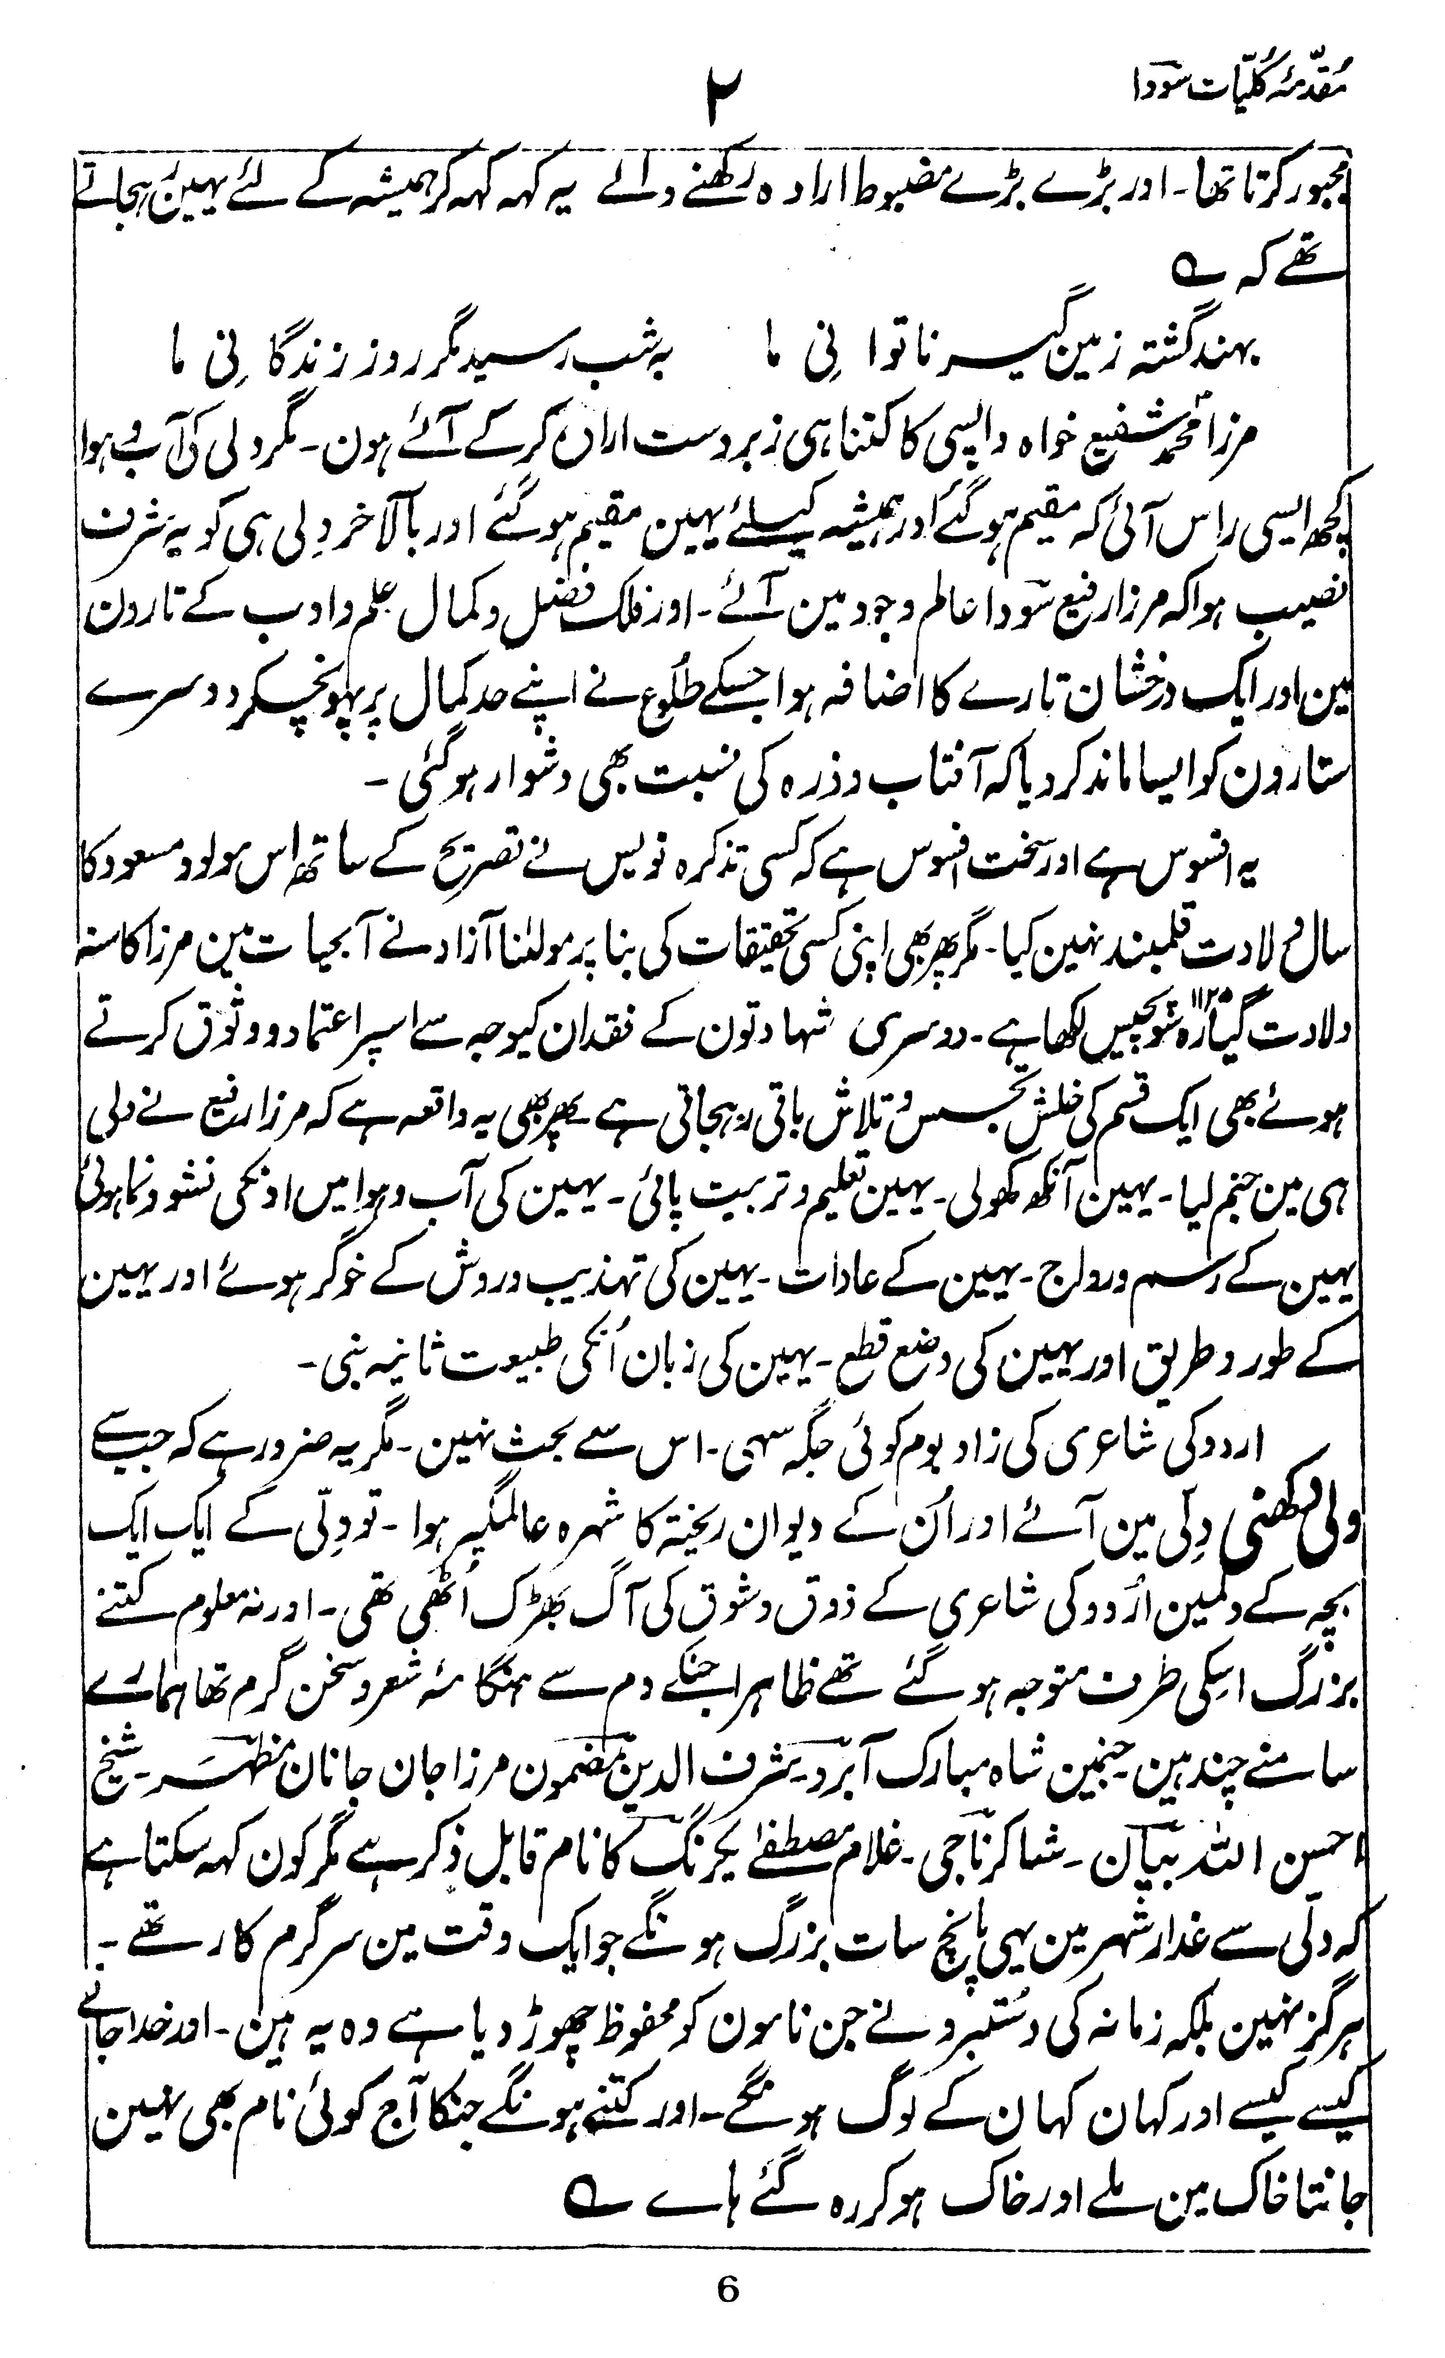 مُقدّمۂ کُلیّات سودا
۲
مجبور کرتا تھا۔ اور بڑے بڑے مضبوط ارادہ رکھنے والے یہ کہہ کہہ کر ہمیشہ کے لئے یہین رہجاتے
تھے کہ ؎
بہند گشتہ زمین گیر ناتوانی ما بہ شب رسید مگر روز زندگانی ما
مرزا محمد شفیع خواہ واپسی کا کتنا ہی زبردست ارادہ کر کے آئے ہون۔ مگر دلی کی آب و ہوا
کچھ ایسی راس آئی کہ مقیم ہو گئے اور ہمیشہ کیلئے یہین مقیم ہو گئے اور بالآخر دِلی ہی کو یہ شرف
نصیب ہوا کہ مرزا رفیع سودا عالم وجود مین آئے۔ اور فلک فضل و کمال علم و ادب کے تارون
مین اور ایک درخشان تارے کا اضافہ ہوا جسکے طلُوع نے اپنے حد کمال پر پہونچکر دوسرے
ستارون کو ایسا ماند کر دیا کہ آفتاب و ذرہ کی نسبت بھی دشوار ہو گئی۔
یہ افسوس ہے اور سخت افسوس ہے کہ کسی تذکرہ نویس نے تصریح کے ساتھ اس مولود مسعود کا
سال ولادت قلمبند نہین کیا۔ مگر پھر بھی اپنی کسی تحقیقات کی بنا پر مولٰنا آزاد نے آبحیات مین مرزا کا سنہ
ولادت گیارہ سو پچیس ۱۱۲۵ لکھا ہے۔ دوسری شہادتون کے فقدان کیوجہ سے اسپر اعتماد و وثوق کرتے
ہوئے بھی ایک قسم کی خلش تجسس و تلاش باقی رہجاتی ہے۔ پھر بھی یہ واقعہ ہے کہ مرزا رفیع نے دلی
ہی مین جنم لیا۔ یہین آنکھ کھولی۔ یہین تعلیم و تربیت پائی۔ یہین کی آب و ہوا میں اونکی نشو و نما ہوئی
یہین کے رسم و رواج۔ یہین کے عادات۔ یہین کی تہذیب و روش کے خوگر ہوئے اور یہین
کے طور و طریق اور یہین کی وضع قطع۔ یہین کی زبان اُنکی طبیعت ثانیہ بنی۔
اردو کی شاعری کی زاد بوم کوئی جگہ سہی۔ اس سے بحث نہین۔ مگر یہ ضرور ہے کہ جب سے
ولی دکھنی دِلّی مین آئے اور اُن کے دیوان ریختہ کا شہرہ عالمگیر ہوا۔ تو دِلّی کے ایک ایک
بچہ کے دلمین اُردو کی شاعری کے ذوق و شوق کی آگ بھڑک اُٹھی تھی۔ اور نہ معلوم کتنے
بزرگ اسکی طرف متوجہ ہو گئے تھے ظاہرا جنکے دم سے ہنگامۂ شعر و سخن گرم تھا ہمارے
سامنے چند ہین۔ جنمین شاہ مبارک آبرو۔ شرف الدین مضمون مرزا جان جانان مظہر۔ شیخ
احسن اللہ بیان۔ شاکر ناجی۔ غلام مصطفٰے یکرنگ کا نام قابل ذکر ہے مگر کون کہہ سکتا ہے
کہ دلّی سے غدار شہر مین یہی پانچ سات بزرگ ہونگے جو ایک وقت مین سرگرم کار تھے۔
ہرگز نہین بلکہ زمانہ کی دستبرو نے جن نامون کو محفوظ چھوڑ دیا ہے وہ یہ ہین۔ اور خدا جانے
کیسے کیسے اور کہان کہان کے لوگ ہونگے۔ اور کتنے ہونگے جنکا آج کوئی نام بھی نہین
جانتا خاک مین ملے اور خاک ہو کر رہ گئے ہاے ؎
6